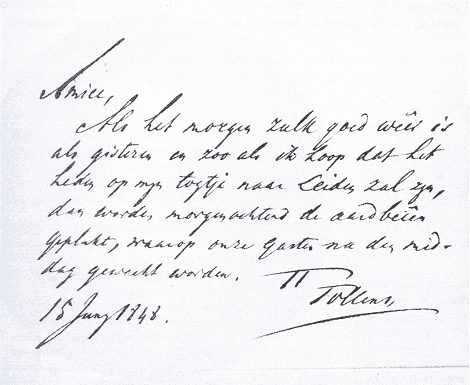 Amice,
Als het morgen zulk goed wêer is
als gisteren en zoo als ik hoop dat het
heden op mijn togtje naar Leiden zal zyn,
dan worden morgenochtend de aardbeien
geplukt, waarop onze gasten na den mid-
dag gewacht worden.
TT
Tollens
15 Juny 1848.